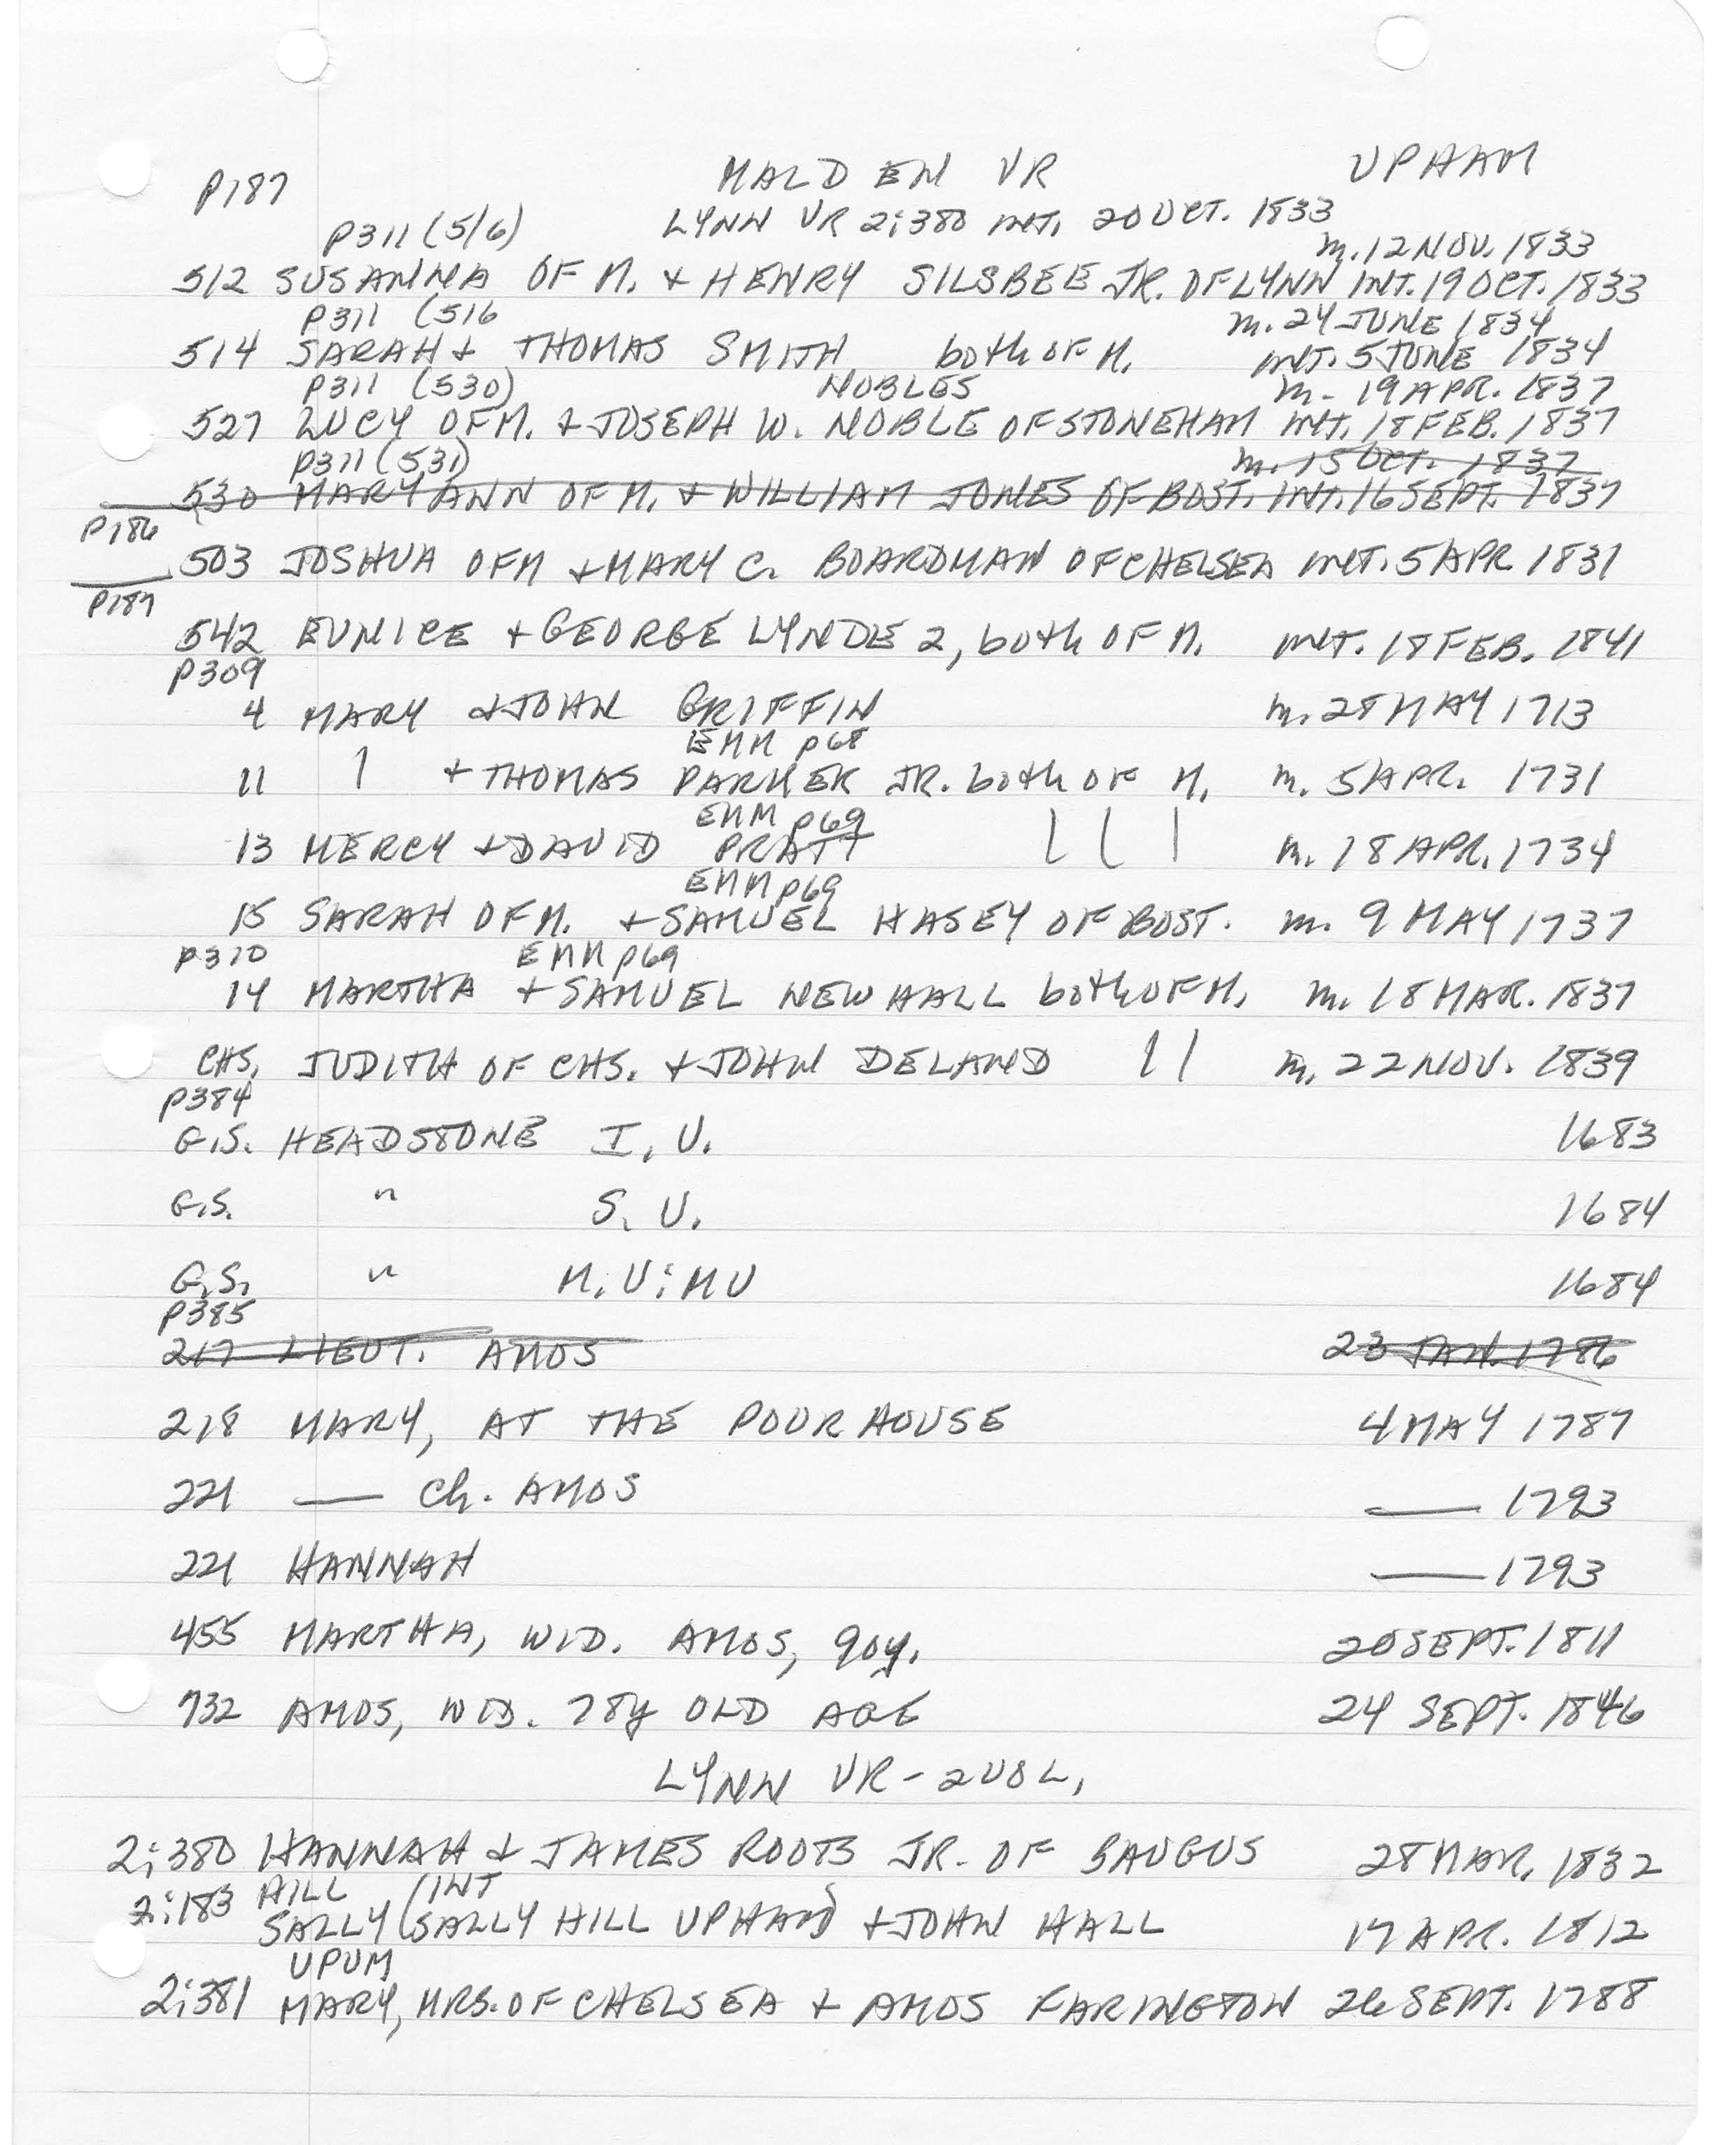 P187 MALDEN VR UPHAM
P311 (516) LYNN VR 2;380 INT. 20 OCT. 1833
m. 12 NOV. 1833
512 SUSANNA OF M. + HENRY SILSBEE JR. OF LYNN INT. 19 OCT. 1833
P311 (516 m. 24 JUNE 1834
514 SARAH + THOMAS SMITH both OF M. INT. 5 JUNE 1834
P311 (530) NOBLES m - 19 APR. 1837
527 LUCY OF M. + JOSEPH W. NOBLE OF STONEHAM INT. 18 FEB. 1837
P311 (531) m. 15 OCT. 1837
530 MARY ANN OF M. + WILLIAM JONES OF BOST. INT. 16 SEPT. 1837
P186
503 JOSHUA OF M + MARY C. BOARDMAN OF CHELSEA INT. 5 APR 1831
P187
542 EUNICE + GEORGE LYNDE 2, both OF M. INT. 18 FEB. 1841
P309
4 MARY + JOHN GRIFFIN m. 28 MAY 1713
EMM p68
11 | + THOMAS PARKER JR. both OF M. m. 5 APR. 1731
EMM p69
13 MERCY + DAVID PRATT | | | m. 18 APR. 1734
EMM p69
15 SARAH OF M. + SAMUEL HASEY OF BOST. m. 9 MAY 1737
P310 EMM p69
14 MARTHA + SAMUEL NEWHALL both OF M. m. 18 MAR. 1837
CHS. JUDITH OF CHS. + JOHN DELAND | | m. 22 NOV. 1839
P384
G.S. HEADSTONE I. U. 1683
G.S. " S. U. 1684
G.S. " M. U; MU 1684
P385
217 LIEUT. AMOS 23 JAN. 1786
218 MARY, AT THE POOR HOUSE 4 MAY 1787
221 — ch. AMOS — 1793
221 HANNAH — 1793
455 MARTHA, WID. AMOS, 90y. 20 SEPT. 1811
732 AMOS, WID. 78y OLD AGE 24 SEPT. 1846
LYNN VR - 2 VOL,
2;380 HANNAH + JAMES ROOTS JR. OF SAUGUS 28 MAR. 1832
2;183 HILL (INT
SALLY (SALLY HILL UPHAM) + JOHN HALL 17 APR. 1812
UPUM
2;381 MARY, MRS. OF CHELSEA + AMOS FARINGTON 26 SEPT. 1788